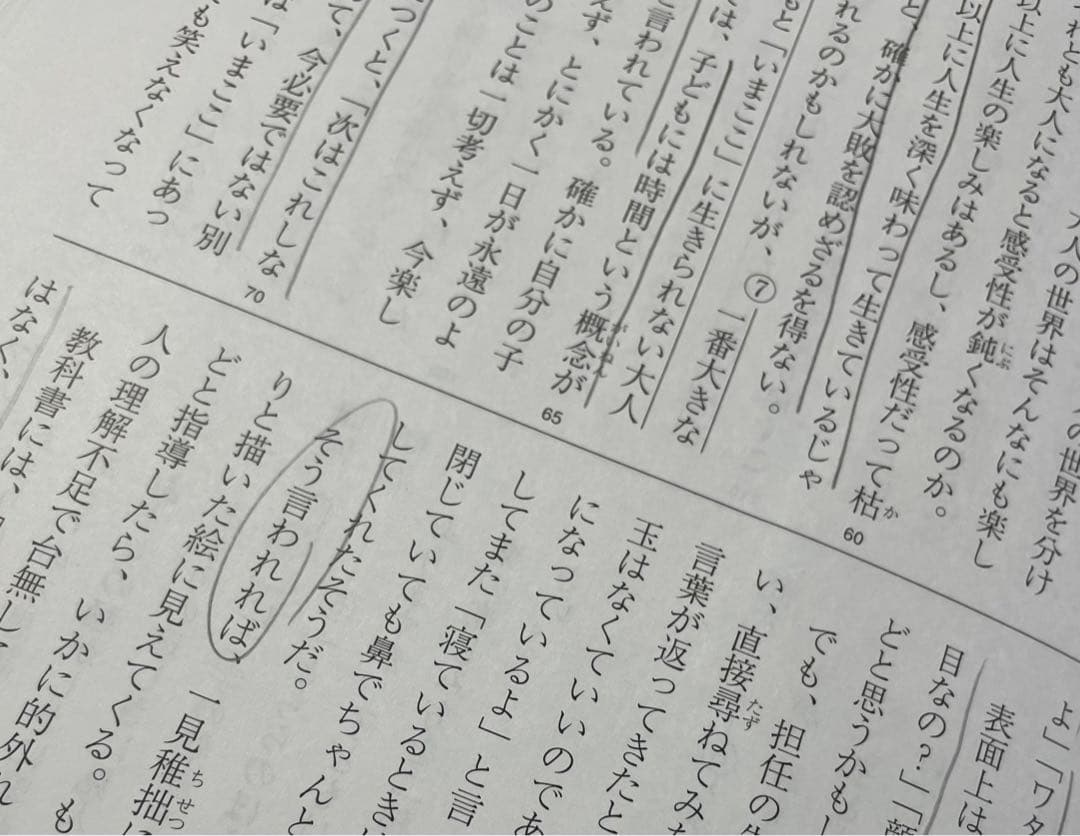 の世界を分け
大人の世界はそんなにも楽し
れとも大人になると感受性が鈍くなるのか。
以上に人生の楽しみはあるし、感受性だって枯
以上に人生を深く味わって生きているじゃ
と、確かに大敗を認めざるを得ない。
れるのかもしれないが、⑦一番大きな
もと「いまここ」に生きられない大人
は、子どもには時間という概念が
と言われている。確かに自分の子
えず、とにかく一日が永遠のよ
のことは一切考えず、今楽し
つくと、「次はこれしな
て、今必要ではない別
は「いまここ」にあっ
も笑えなくなって
60
65
70
よ」「ワタ
表面上は
目なの？」「顔
どと思うかもし
でも、担任の
い、直接尋ねてみ
言葉が返ってきたと
玉はなくていいのであ
になっているよ」と言
してまた「寝ているとき
閉じていても鼻でちゃんと
してくれたそうだ。
そう言われれば、一見稚拙
りと描いた絵に見えてくる。も
どと指導したら、いかに的外れ
人の理解不足で台無し
教科書には、
はなく、